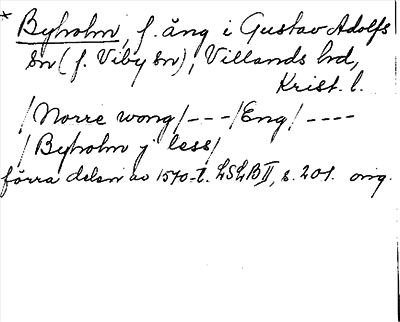 * Byholm, f. äng i Gustav Adolfs
sn (f. Viby sn), Villands hd,
Krist. l.
/Norre wong/ - - - /Eng/ - - - -
/Byholm j lass/
förra delen av 1570-t. LSLB II, s. 201. orig.